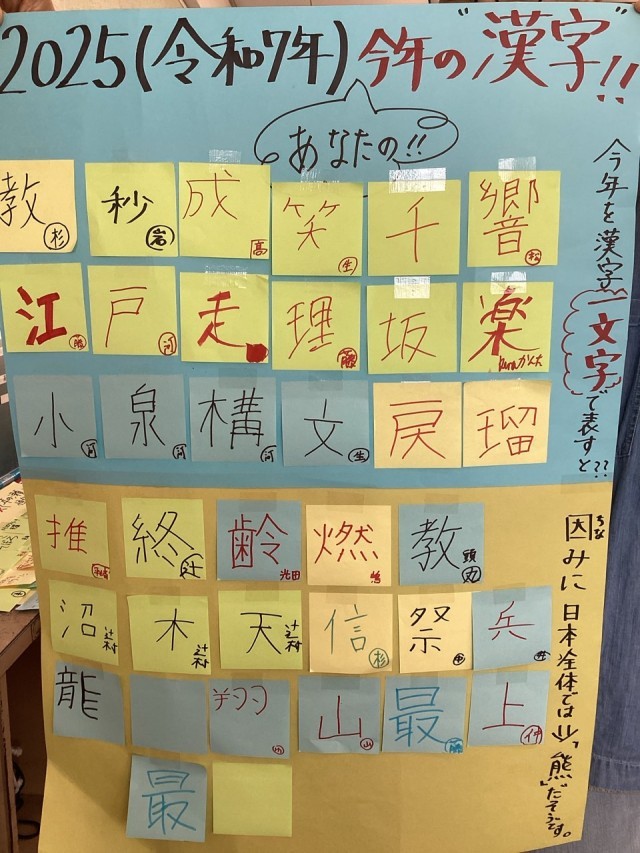 2025(令和7年)今年の"漢字"!!
あなたの!!
今年を漢字一文字で表すと??
教 杉
秒 岩
成 高
笑 生
千
響 松
江 藤
戸 河
走
理 藤
坂
楽
小 河
泉 河
構 河
文 生
戻
瑠
推
終 辻
齢 光田
燃 嶋
教 頭
沼 辻村
木 辻村
天 辻村
信 杉
祭
兵
龍
翔
山 山
最 藤
上 仲
最
因みに日本全体では"熊"だそうです。
ちな